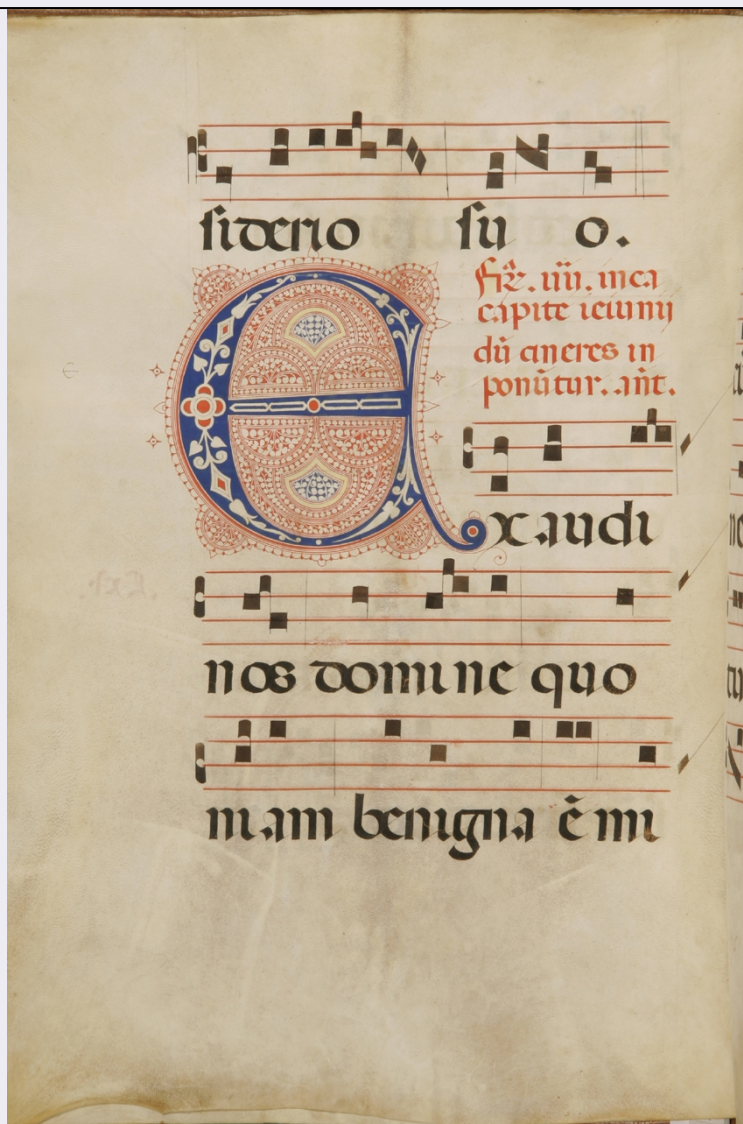 siderio su o.
Fir̃. iiii. in ca
capite ieiunij
dũ cineres in
ponũtur. añt.
Exaudi
nos domine quo
niam benigna ẽ mi